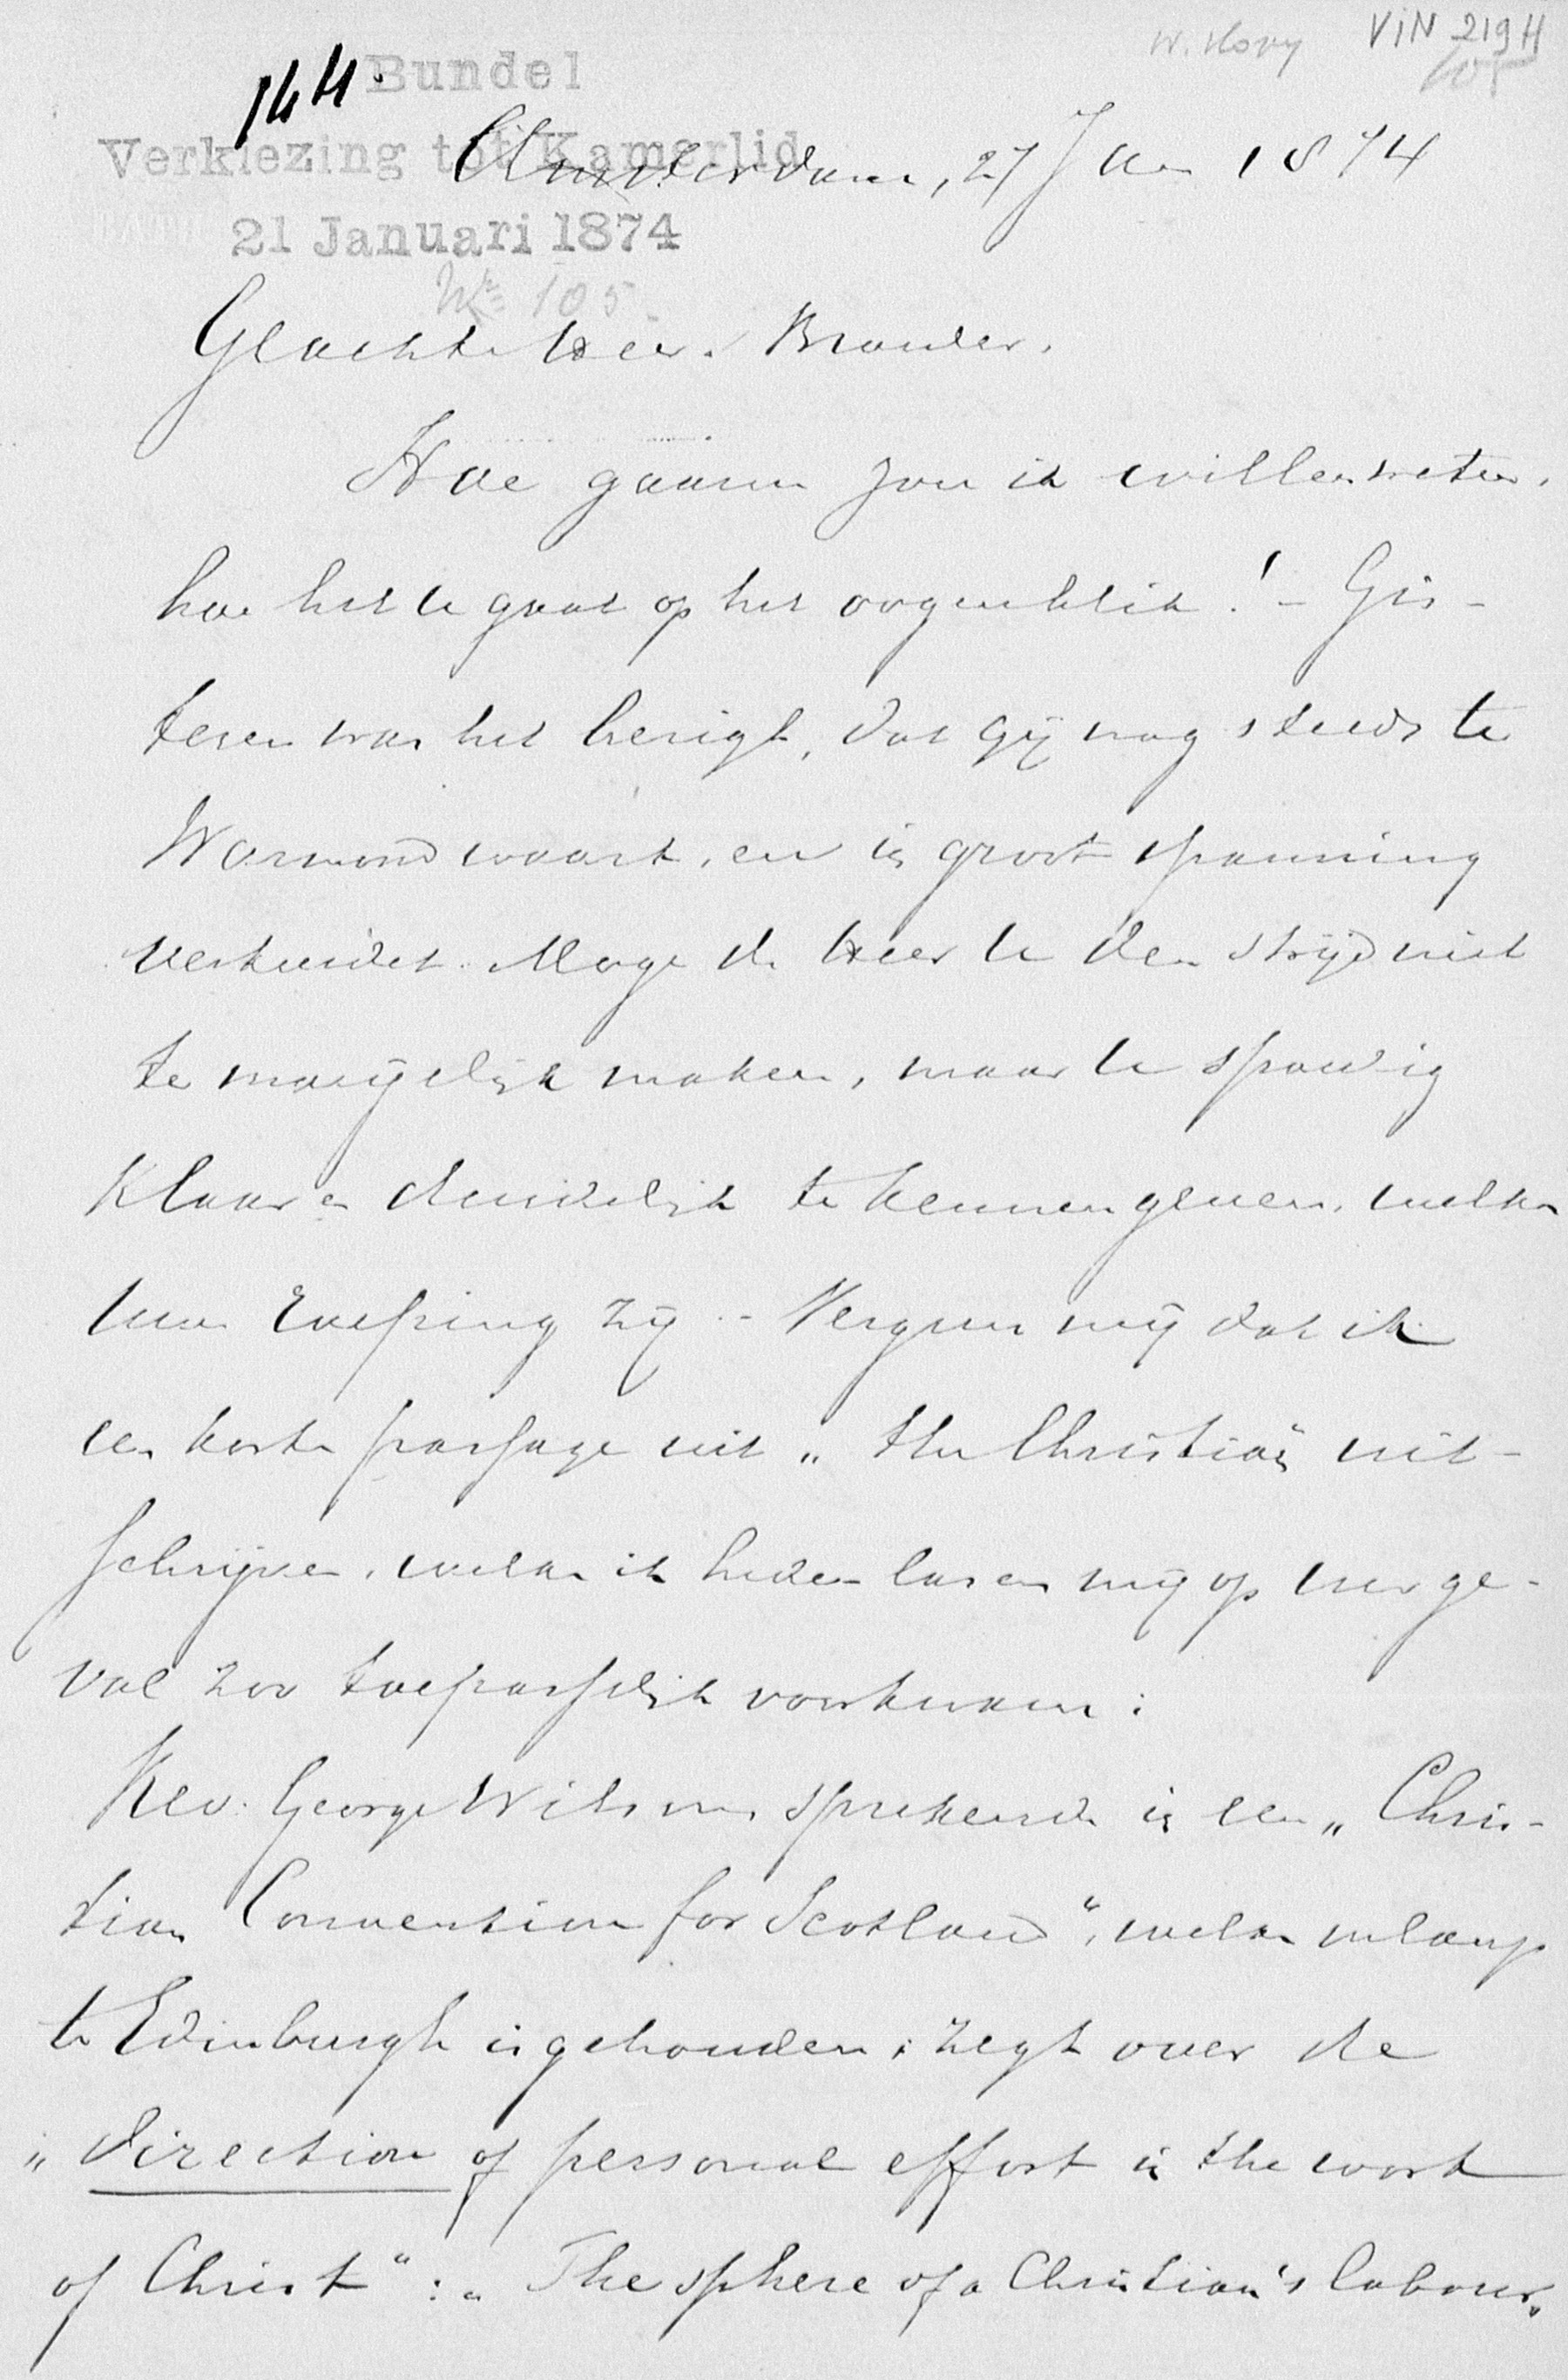 W. Hovy VIN 219H
105
144. Bundel
Verkiezing tot Kamerlid
21 Januari 1874
No 105.
Amsterdam, 27 Jan 1874
Geachte Heer & Broeder.
Hoe gaarne zou ik willen weten,
hoe het U gaat op het oogenblik! - Gis-
teren was het berigt, dat gij nog steeds te
Warmond waart, en in groote spanning
verkeerdet. Moge de Heer U den strijd niet
te moeijelijk maken, maar U spoedig
klaar en duidelijk te kennen geven, welke
Uwe roeping zij. - Vergun mij dat ik
een korte passage uit „the Christian" uit-
schrijve, welke ik heden las en mij op Uw ge-
val zoo toepasselijk voorkwam:
Rev. George Wilson, sprekende in een „Chris-
tian Convention for Scotland", welke onlangs
te Edinburgh is gehouden, zegt over de
„direction of personal effort in the work
of Christ": „The sphere of a Christian's labour,